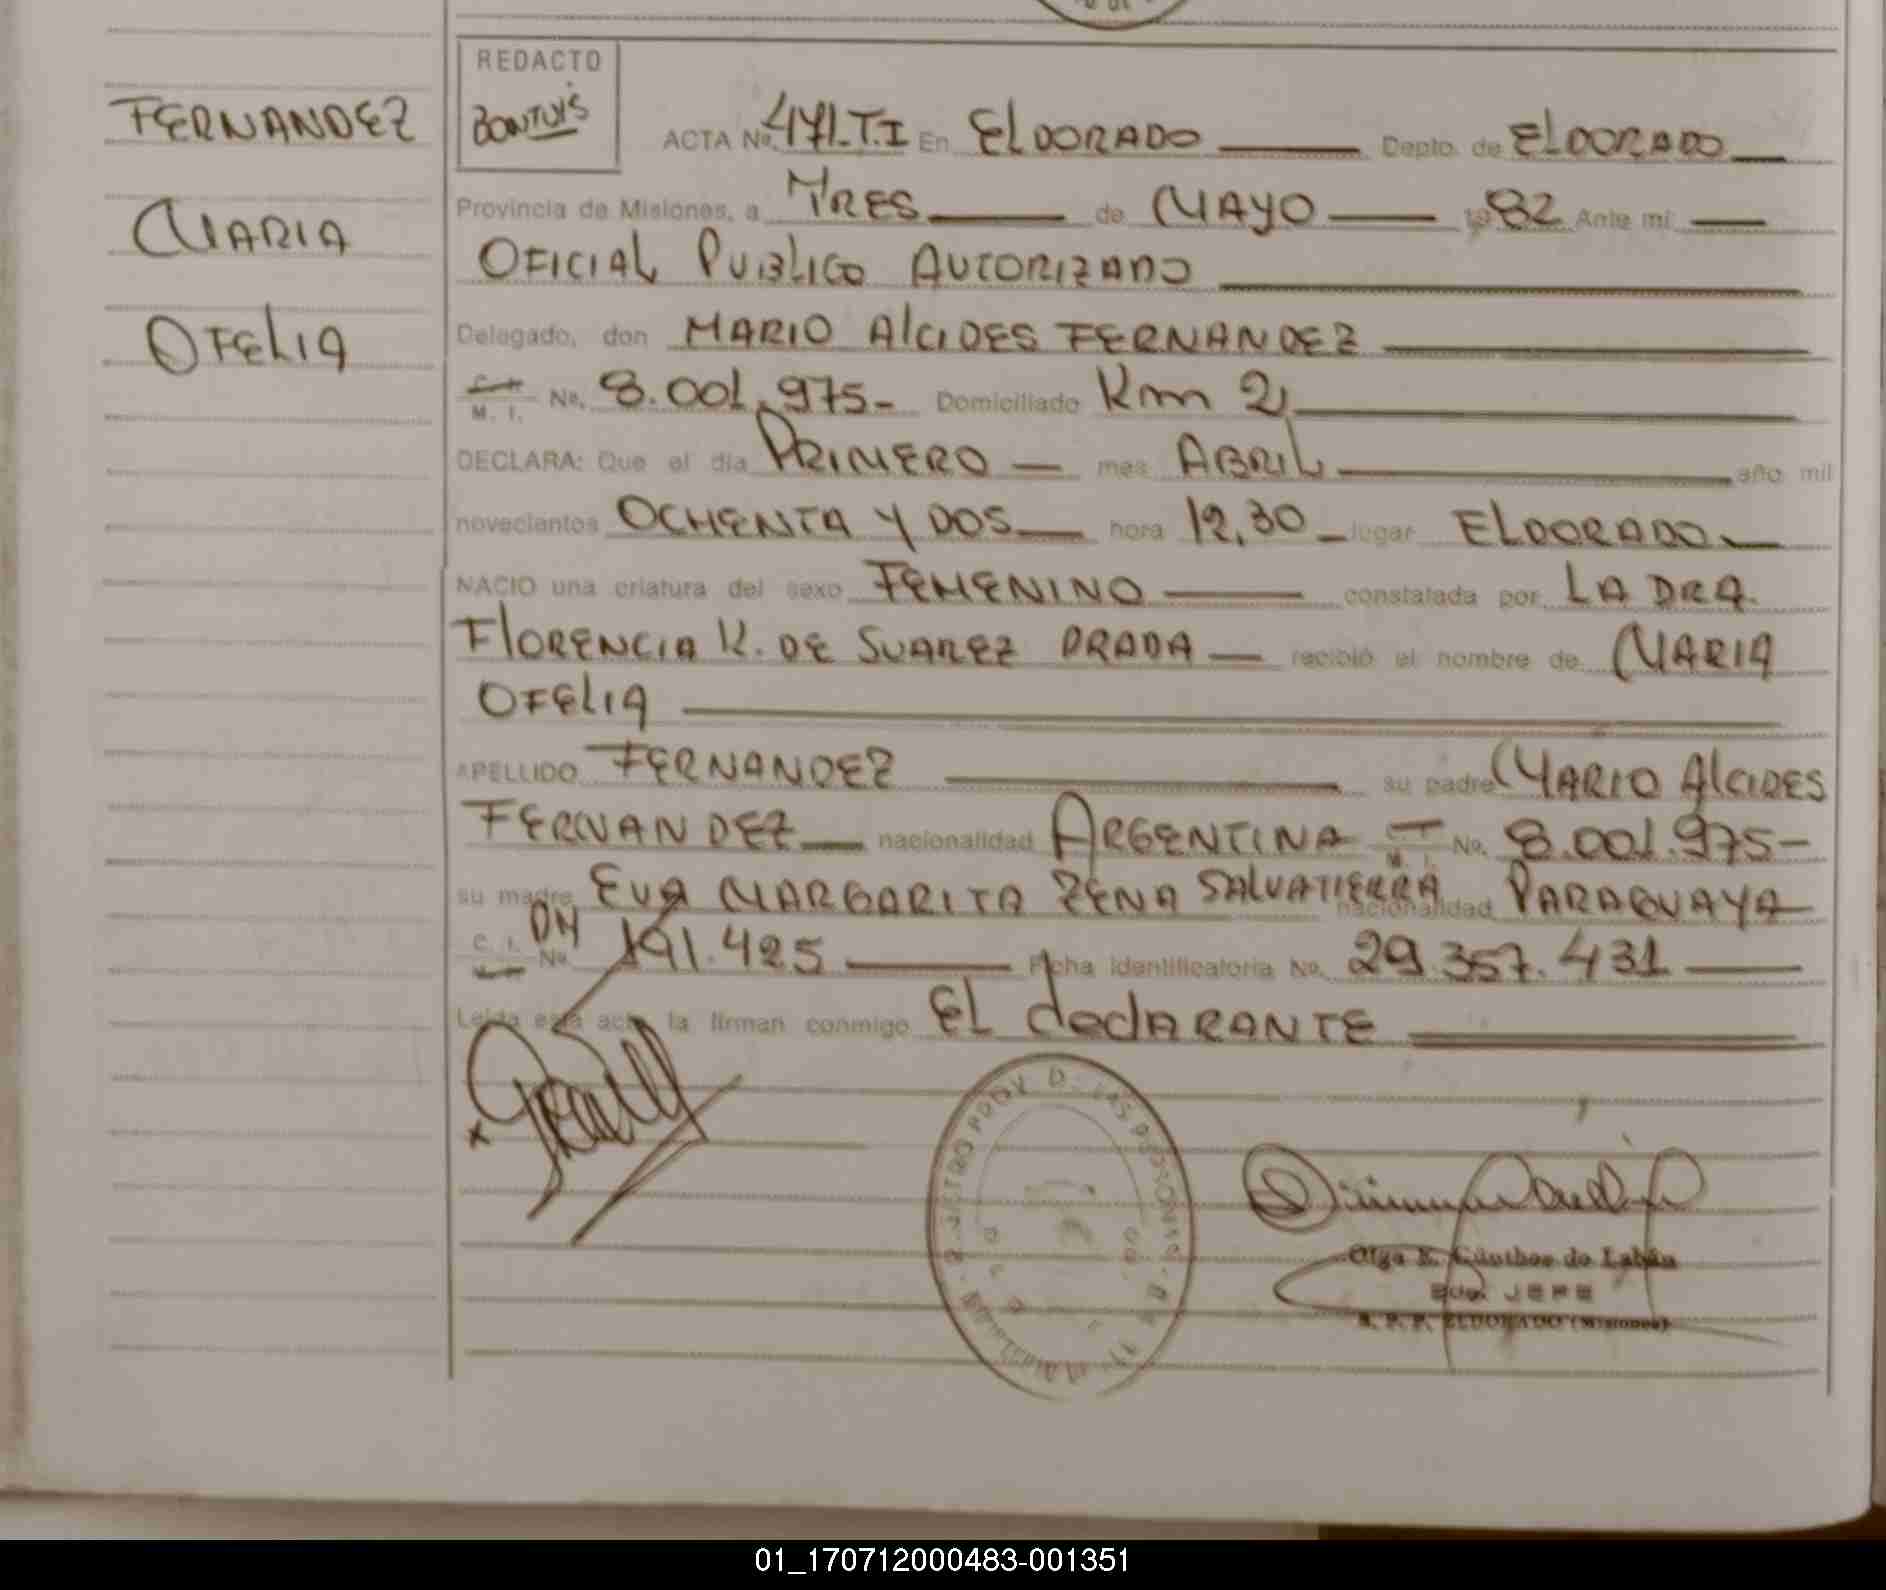 REDACTO
FERNANDEZ
ACTA No. 471-T.I En ELDORADO Depto. de ELDORADO
Provincia de Misiones, a TRES de MAYO 1982 Ante mi:
MARIA
OFICIAL PUBLICO AUTORIZADO
OFELIA
Delegado, don MARIO ALCIDES FERNANDEZ
M. I. No. 8.001.975- Domiciliado Km 2
DECLARA: Que el día PRIMERO mes ABRIL año mil
novecientos OCHENTA Y DOS hora 12,30 lugar ELDORADO
NACIO una criatura del sexo FEMENINO constatada por LA DRA.
FLORENCIA K. DE SUAREZ PRADA recibió el nombre de MARIA
OFELIA
APELLIDO FERNANDEZ su padre MARIO ALCIDES
FERNANDEZ nacionalidad ARGENTINA M. I. No. 8.001.975-
su madre EVA MARGARITA ZENA SALVATIERRA nacionalidad PARAGUAYA
C. I. No. DM 191.425 Ficha identificatoria No. 29.357.431
Leída esta acta la firman conmigo EL declARANTE
Olga E. Günther de
JEFE
R. P. P. ELDORADO (Misiones)
01_170712000483-001351